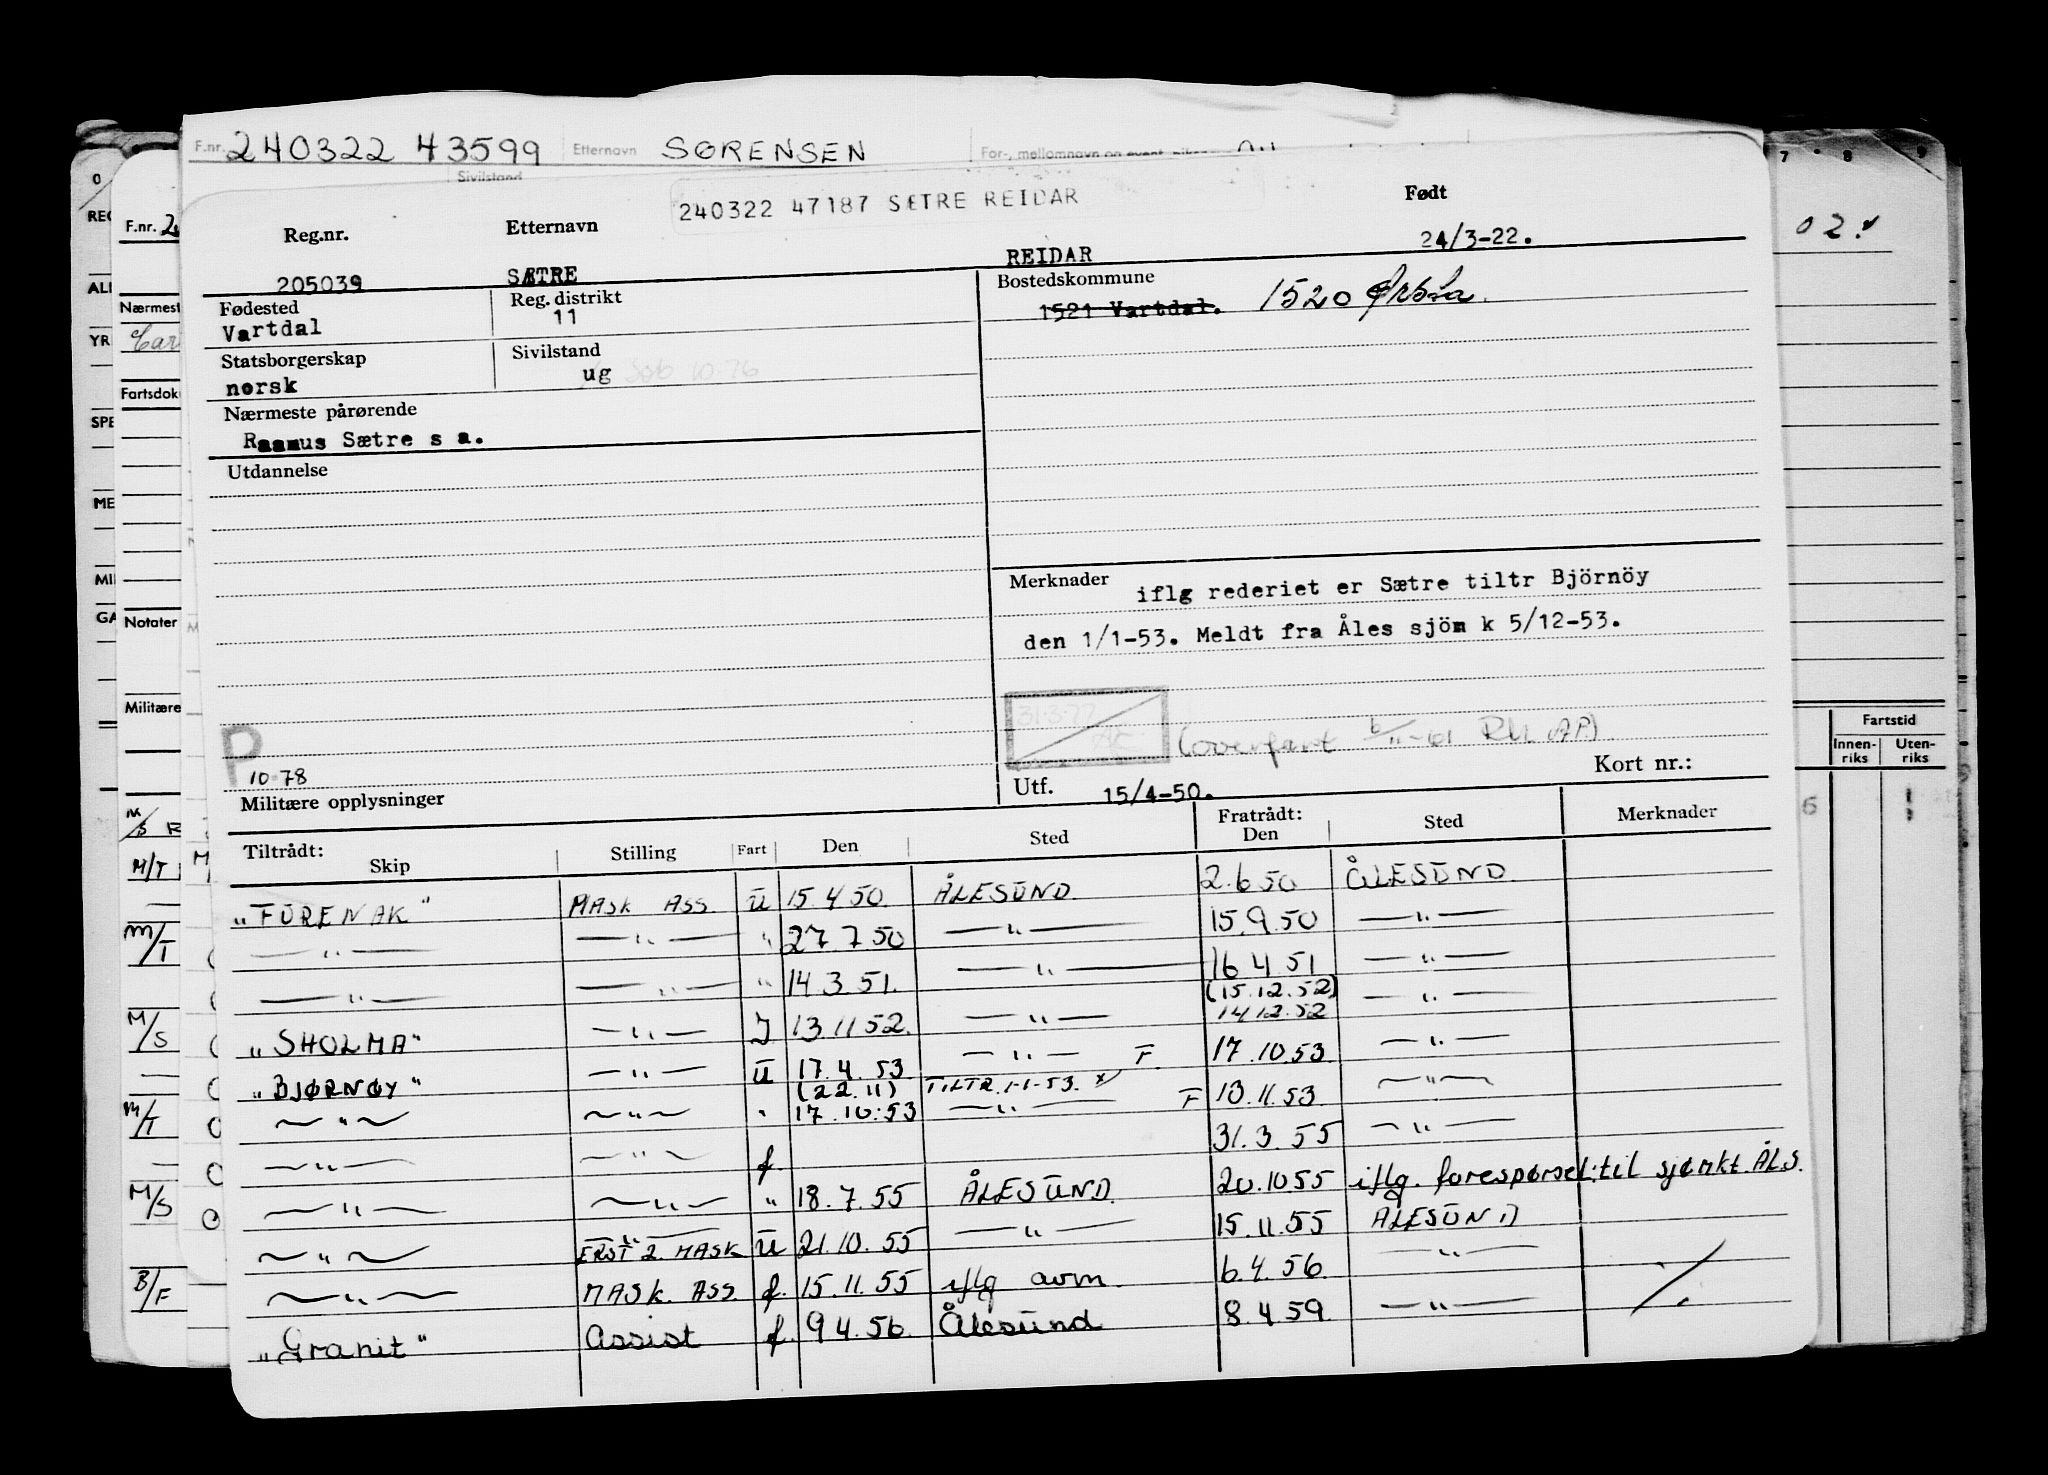 F.nr. 240322 43599 Etternavn SØRENSEN For-, mellomnavn og event.
Sivilstand
240322 47187 SÆTRE REIDAR
Reg.nr. Etternavn Født
205039 SÆTRE REIDAR 24/3-22.
Fødested Reg. distrikt Bostedskommune
Vartdal 11 1521 Vartdal. 1520 Ørsta
Statsborgerskap Sivilstand
norsk ug
Nærmeste pårørende
Rasmus Sætre s a.
Utdannelse
Merknader iflg rederiet er Sætre tiltr Björnöy
den 1/1-53. Meldt fra Åles sjöm k 5/12-53.
31.3.77
(overfart
P
10.78
Militære opplysninger
Utf. 15/4-50. Kort nr.:
Tiltrådt: Skip Stilling Fart Den Sted Fratrådt: Den Sted Merknader
"FURENAK" MASK ASS U 15.4.50. ÅLESUND. 2.6.50 ÅLESUND.
—"— —"— " 27.7.50 —"— 15.9.50 —"—
—"— —"— " 14.3.51. —"— 16.4.51 —"—
(15.12.52)
"SHOLMA" —"— J 13.11.52. —"— 14.12.52 —"—
"BJØRNØY" —"— U 17.4.53 —"— F. 17.10.53. —"—
(22.11) TILTR. 1-1-53. x)
—"— —"— " 17.10.53 —"— F 13.11.53 —"—
—"— —"— f 31.3.55 —"—
—"— —"— " 18.7.55 ÅLESUND. 20.10.55 iflg. forespørsel til sjømkt. ÅLS.
—"— —"— ERST 2. MASK U 21.10.55 —"— 15.11.55 ÅLESUND
—"— MASK. ASS. f. 15.11.55 iflg avm. 6.4.56. —"—
"Granit" Assist f. 9.4.56. Ålesund 8.4.59. —"—
F.nr.
Nærmest
Fartsdok
Notater
Militære
M/T
M/T
M/S
M/T
M/S
B/F
0
REG
YR
SPE
ME
7 8 9
02.
Fartstid
Innen-
riks
Uten-
riks